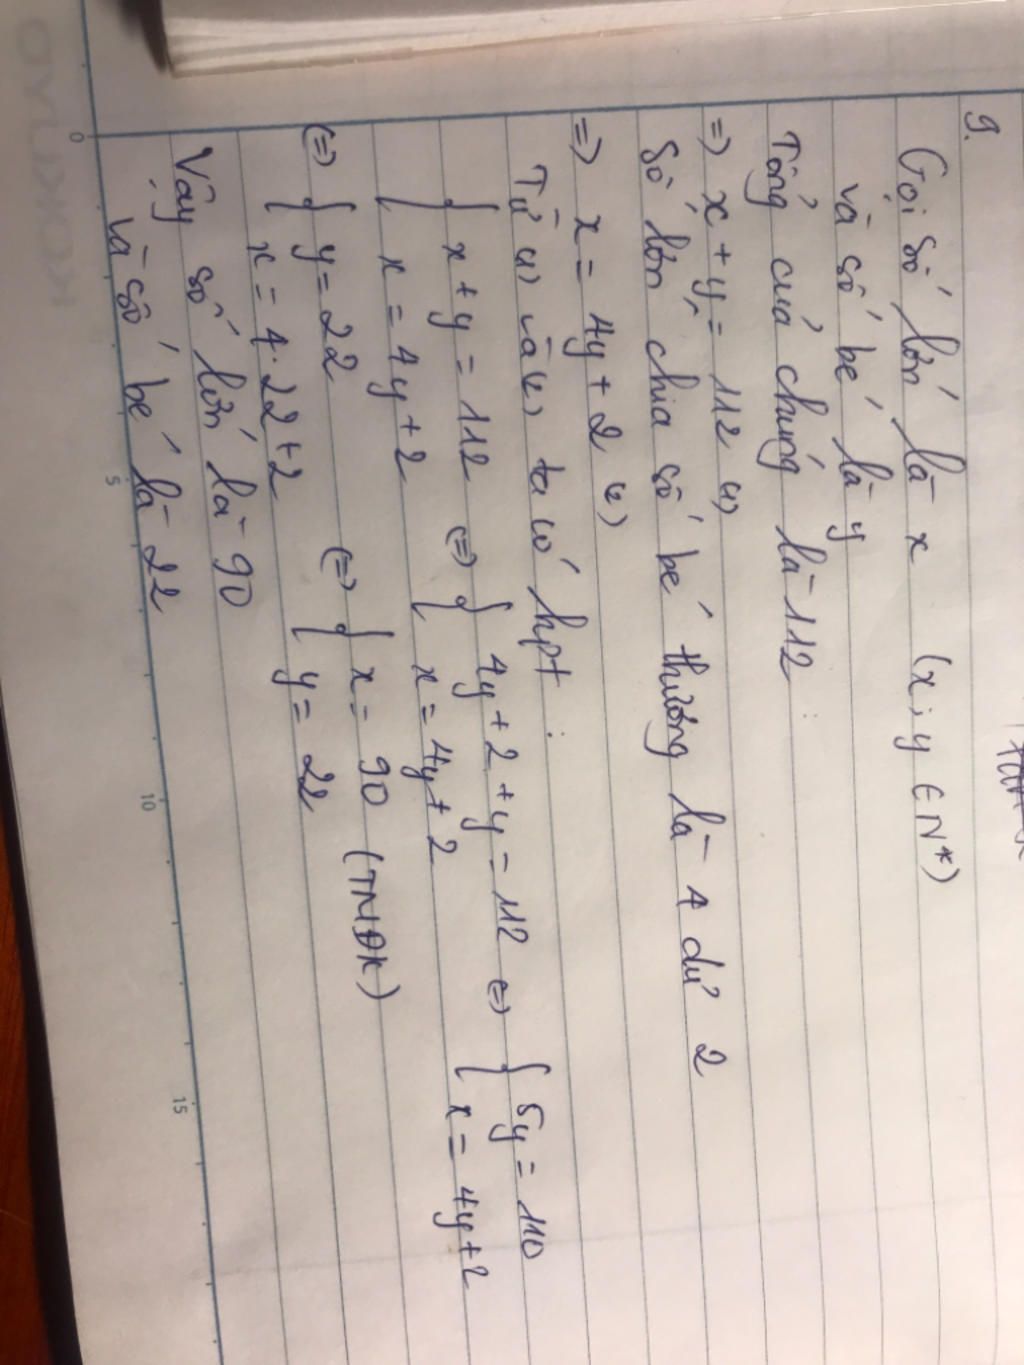 9.
Gọi số lớn là x (x; y ∈ N*)
và số bé là y
Tổng của chúng là 112
=> x + y = 112 (1)
Số lớn chia số bé thương là 4 dư 2
=> x = 4y + 2 (2)
Từ (1) và (2) ta có hpt :
{ x + y = 112 (=) { 4y + 2 + y = 112 (=) { 5y = 110
{ x = 4y + 2 { x = 4y + 2 { x = 4y + 2
(=) { y = 22 (=) { x = 90 (TMĐK)
x = 4.22 + 2 { y = 22
Vậy số lớn là 90
và số bé là 22
0 5 10 15